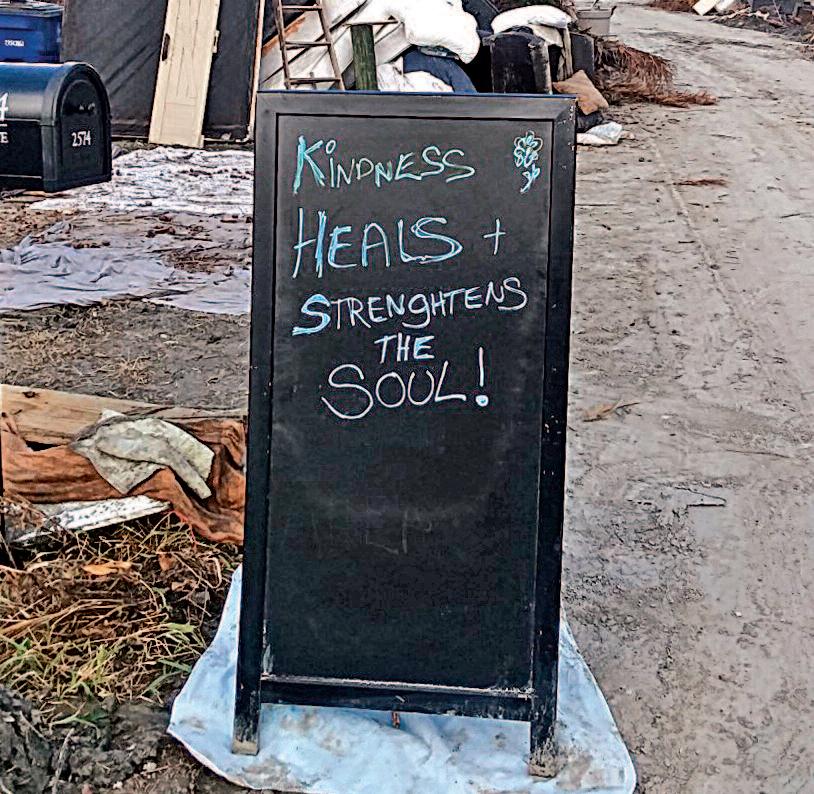 2574
KiNDNESS
HEALS +
STRENgHTENS
THE
SOUL!